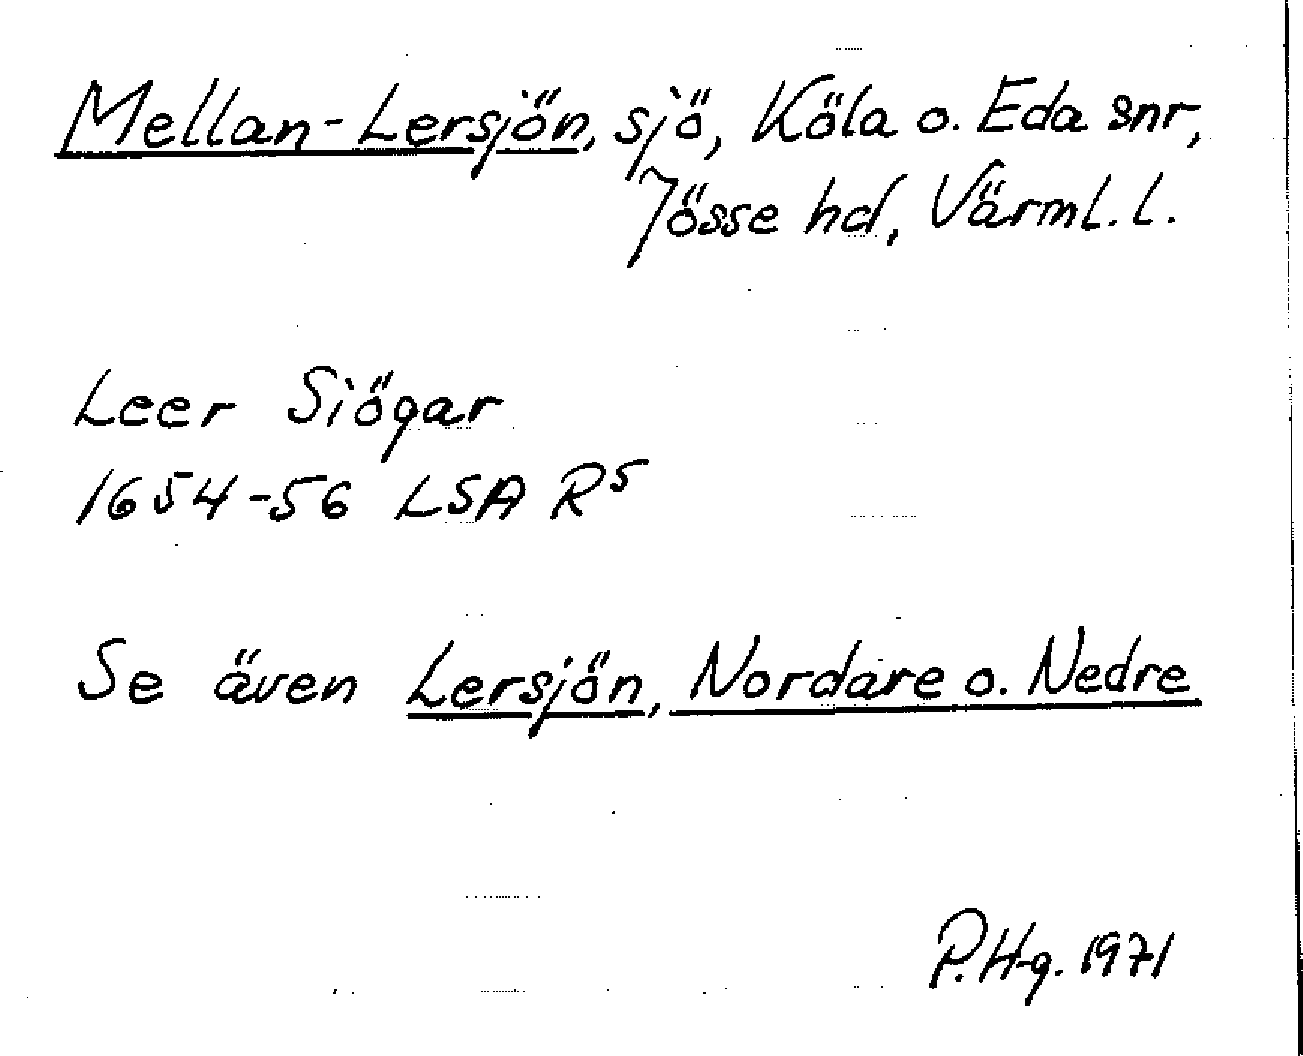 Mellan-Lersjön, sjö, Köla o. Eda snr,
Jösse hd, Värml. l.
Leer Siögar
1654-56 LSA R5
Se även Lersjön, Nordare o. Nedre
P.H-g. 1971